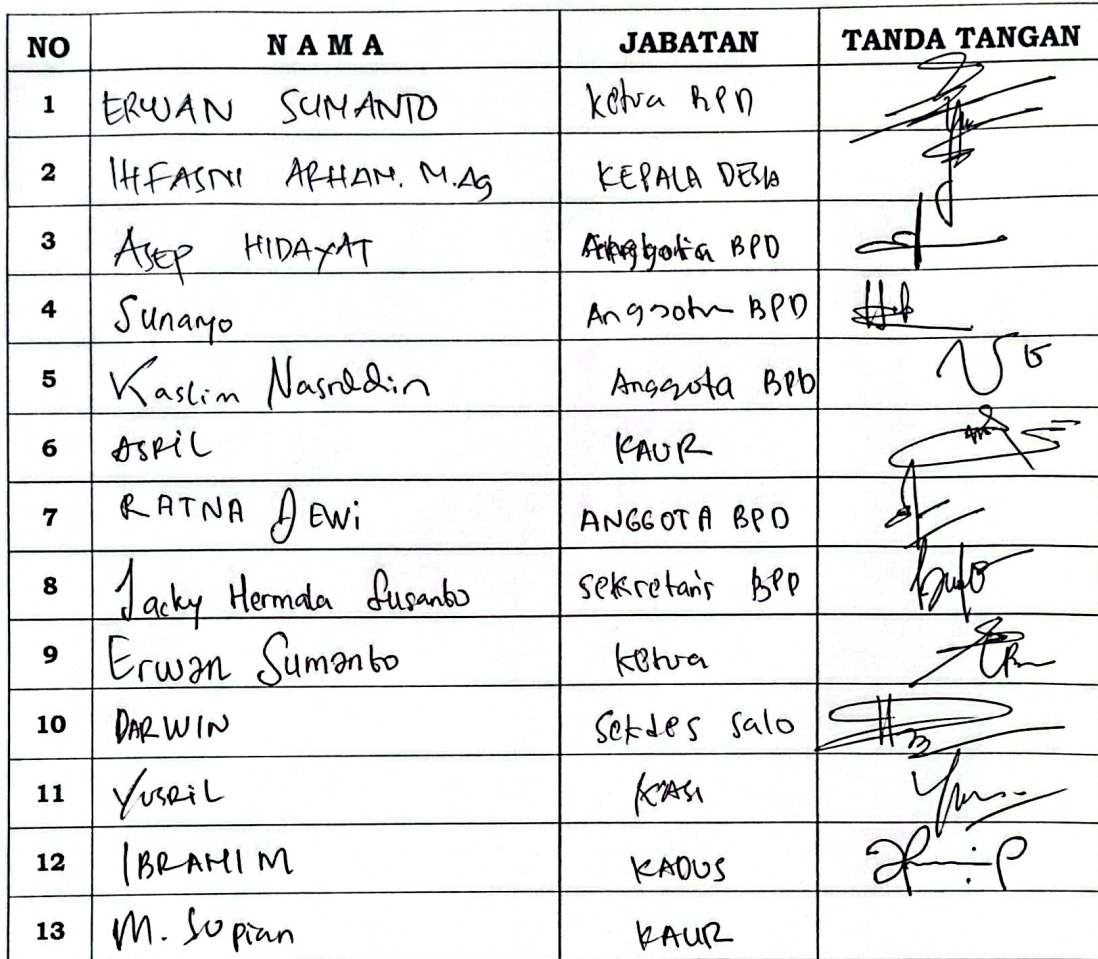 NO N A M A JABATAN TANDA TANGAN
1 ERWAN SUMANTO Ketua BPD
2 IHFASNI ARHAM. M.Ag KEPALA DESA
3 ASEP HIDAYAT Anggota BPD
4 Sunaryo Anggota BPD
5 Kaslim Nasruddin Anggota BPD
6 ASRIL KAUR
7 RATNA DEWi ANGGOTA BPD
8 Jacky Hermala Susanto Sekretaris BPD
9 Erwan Sumanto Ketua
10 DARWIN Sekdes Salo
11 YUSRiL KASI
12 IBRAHIM KADUS
13 M. Sopian KAUR